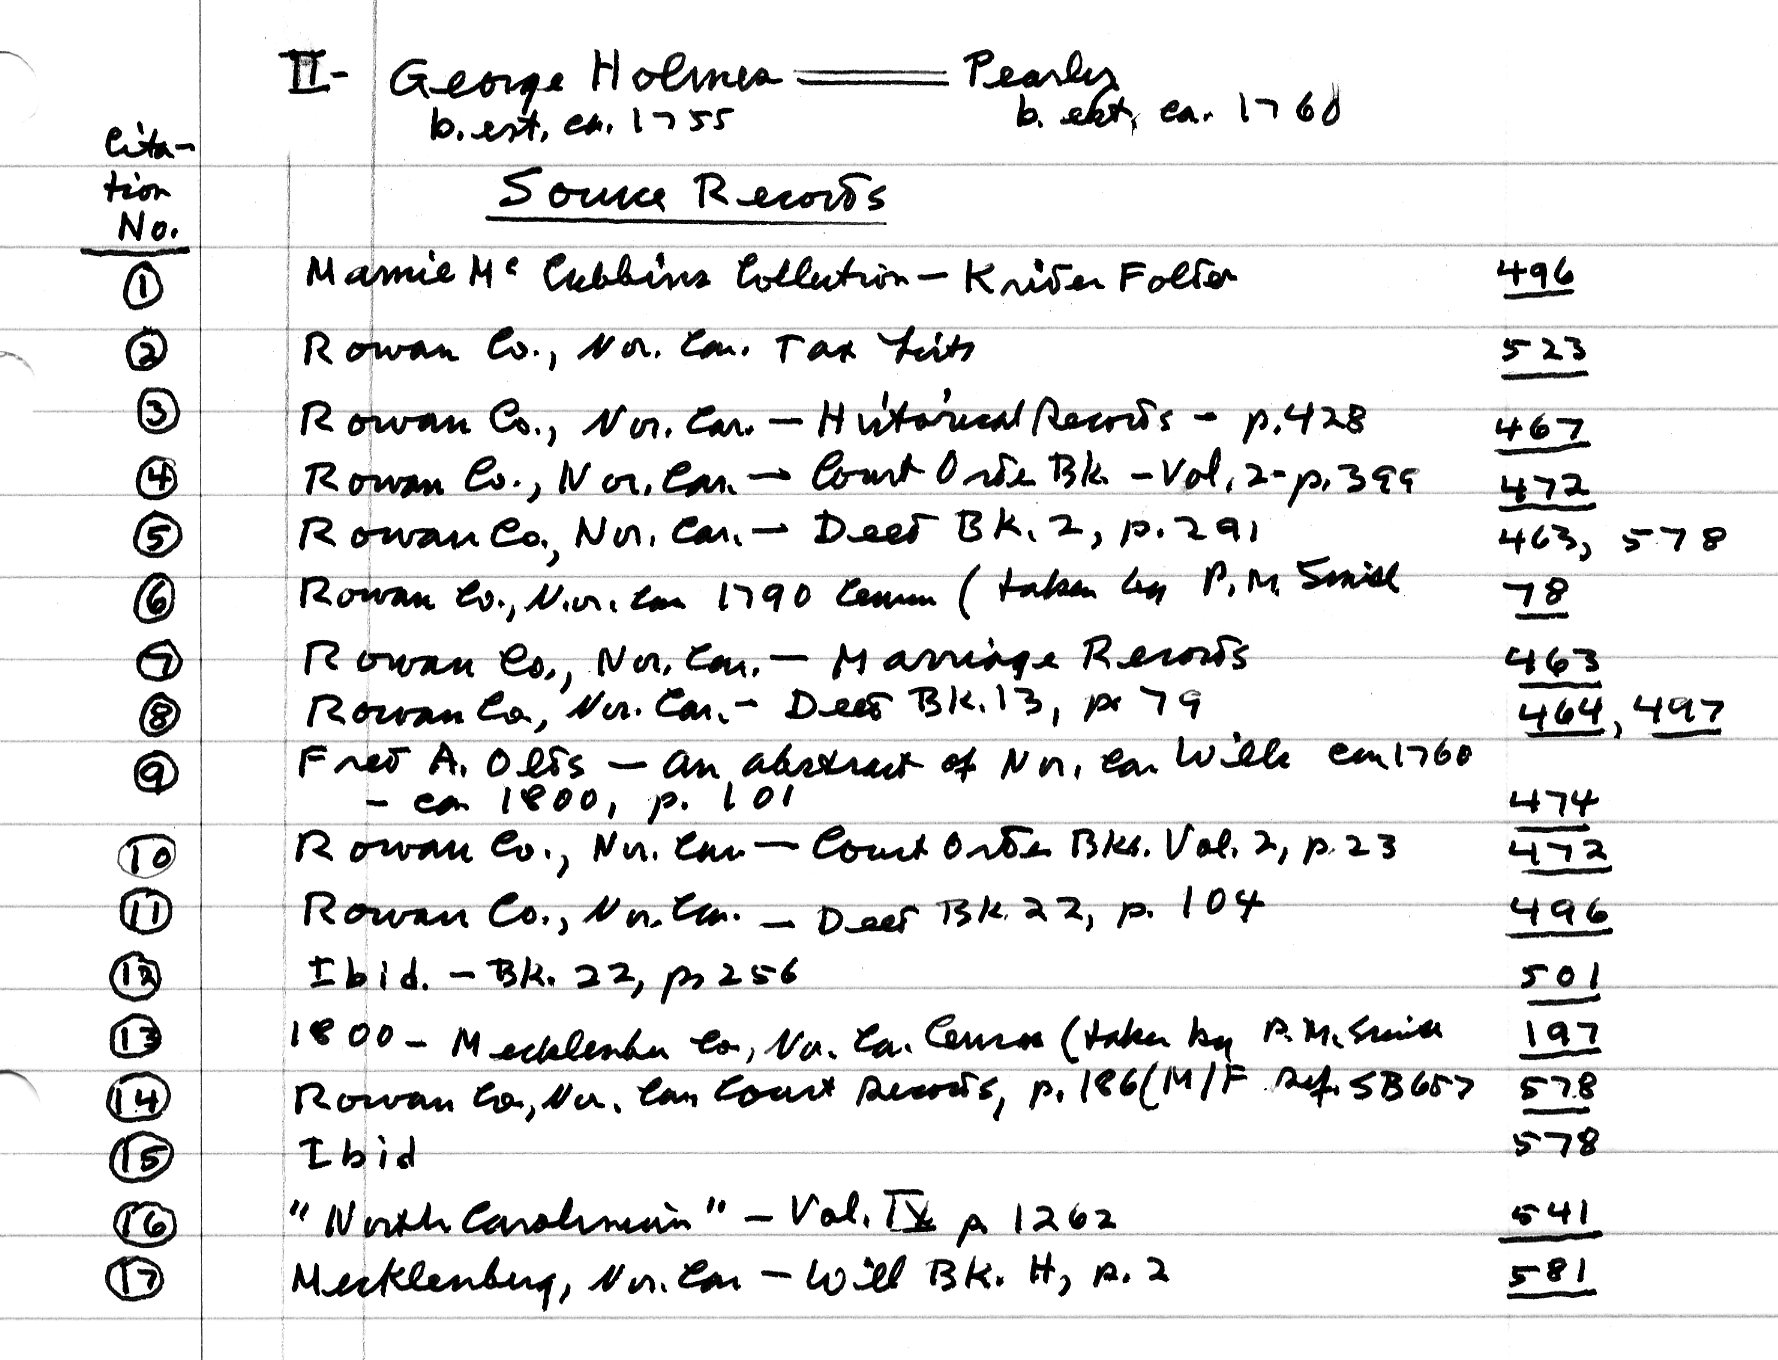 II- George Holmes ═══ Pearley
b. est. ca. 1755 b. est. ca. 1760
Cita-
tion
No.
Source Records
① Mamie Mc Cubbins Collection – Krider Folder 496
② Rowan Co., Nor. Car. Tax Lists 523
③ Rowan Co., Nor. Car. – Historical Records - p. 428 467
④ Rowan Co., Nor. Car. – Court Order Bk. – Vol. 2 - p. 399 472
⑤ Rowan Co., Nor. Car. – Deed Bk. 2, p. 291 463, 578
⑥ Rowan Co., Nor. Car 1790 Census (taken by P. M. Smith 78
⑦ Rowan Co., Nor. Car. – Marriage Records 463
⑧ Rowan Co, Nor. Car. - Deed Bk. 13, p. 79 464, 497
⑨ Fred A. Olds – An abstract of Nor. Car. Wills ca 1760
- ca 1800, p. 101 474
⑩ Rowan Co., Nor. Car – Court Order Bks. Vol. 2, p. 23 472
⑪ Rowan Co., Nor. Car. – Deed Bk. 22, p. 104 496
⑫ Ibid. – Bk. 22, p. 256 501
⑬ 1800 – Mecklenbu Co, No. Ca. Census (taken by P. M. Smith 197
⑭ Rowan Co, Nor. Car Court Records, p. 186 (M/F Ref. SB657 578
⑮ Ibid 578
⑯ "North Carolinian" – Vol. IX p. 1262 541
⑰ Mecklenburg, Nor. Car – Will Bk. H, p. 2 581